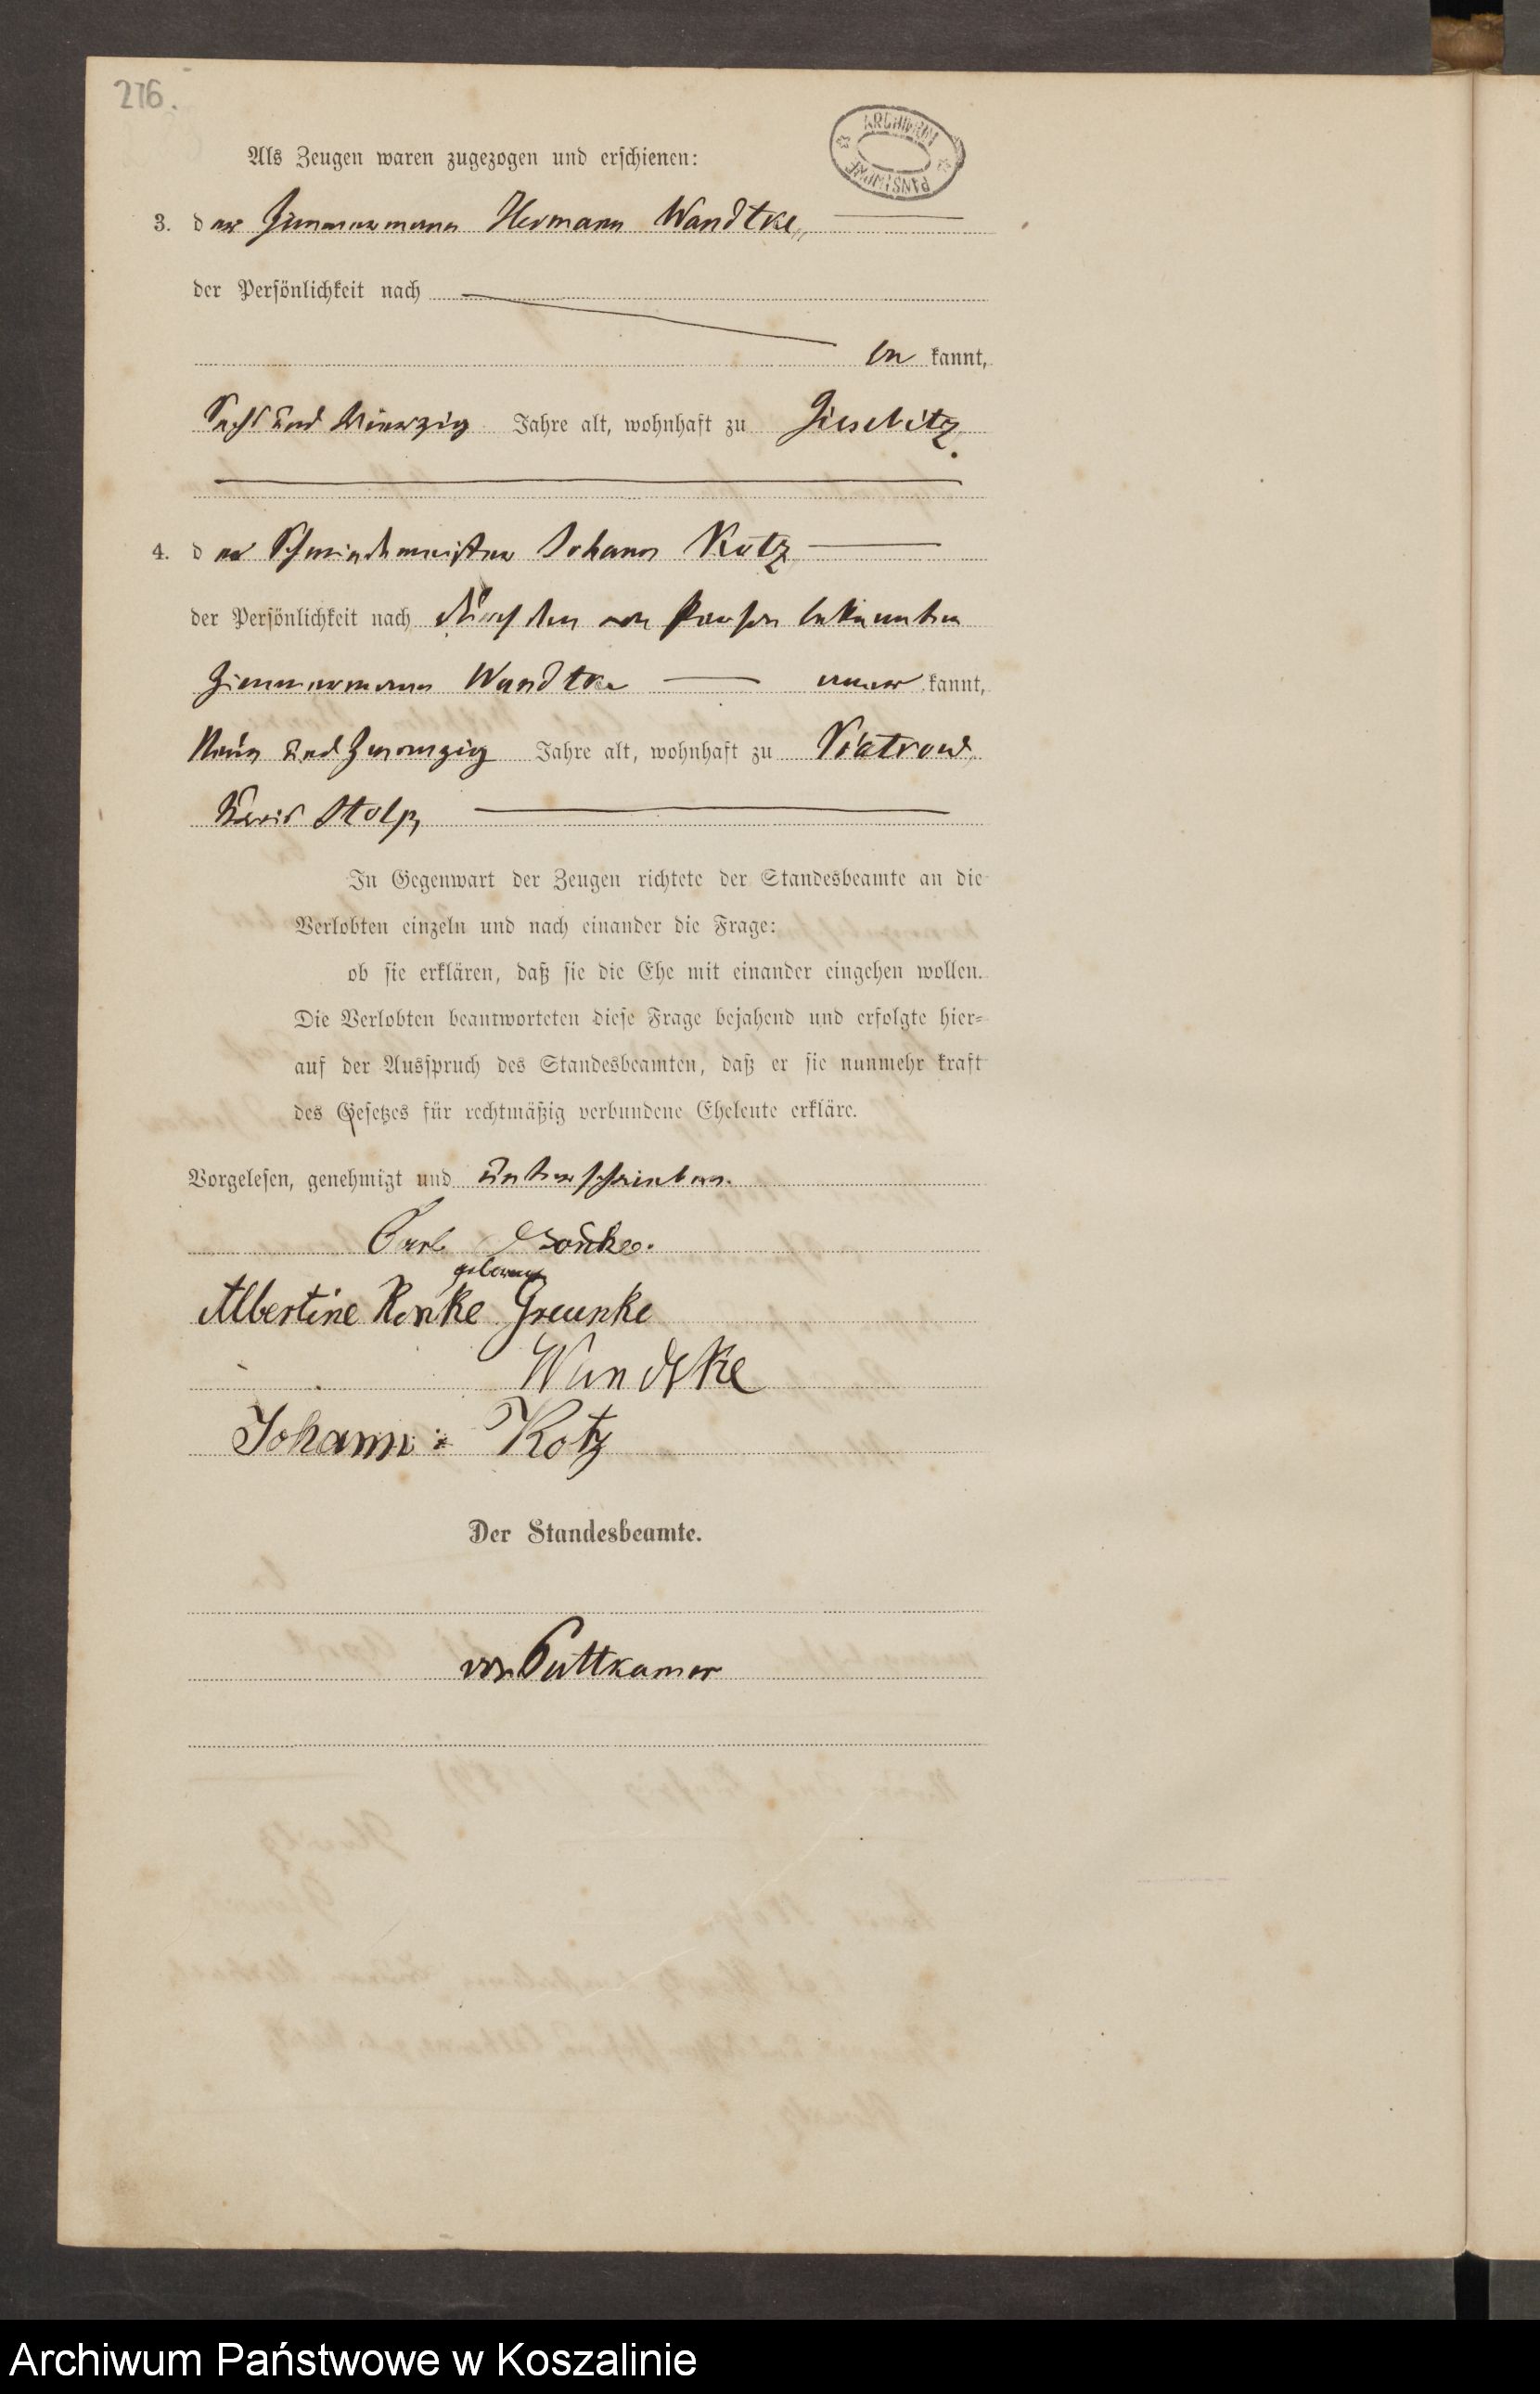 276.
ARCHIWUM PAŃSTWOWE
Als Zeugen waren zugezogen und erschienen:
3. der Zimmermann Hermann Wandtke,
der Persönlichkeit nach
be kannt,
Sechs und Vierzig Jahre alt, wohnhaft zu Giesebitz.
4. der Schmiedemeister Johann Kotz
der Persönlichkeit nach durch den von Person bekannten
Zimmermann Wandtke aner kannt,
Neun und Zwanzig Jahre alt, wohnhaft zu Viatrow
Kreis Stolp,
In Gegenwart der Zeugen richtete der Standesbeamte an die
Verlobten einzeln und nach einander die Frage:
ob sie erklären, daß sie die Ehe mit einander eingehen wollen.
Die Verlobten beantworteten diese Frage bejahend und erfolgte hier=
auf der Ausspruch des Standesbeamten, daß er sie nunmehr kraft
des Gesetzes für rechtmäßig verbundene Eheleute erkläre.
Vorgelesen, genehmigt und unterschrieben.
Carl
geborene
Albertine Ronke Greunke
Wandtke
Johann Kotz
Der Standesbeamte.
von Puttkamer
Archiwum Państwowe w Koszalinie